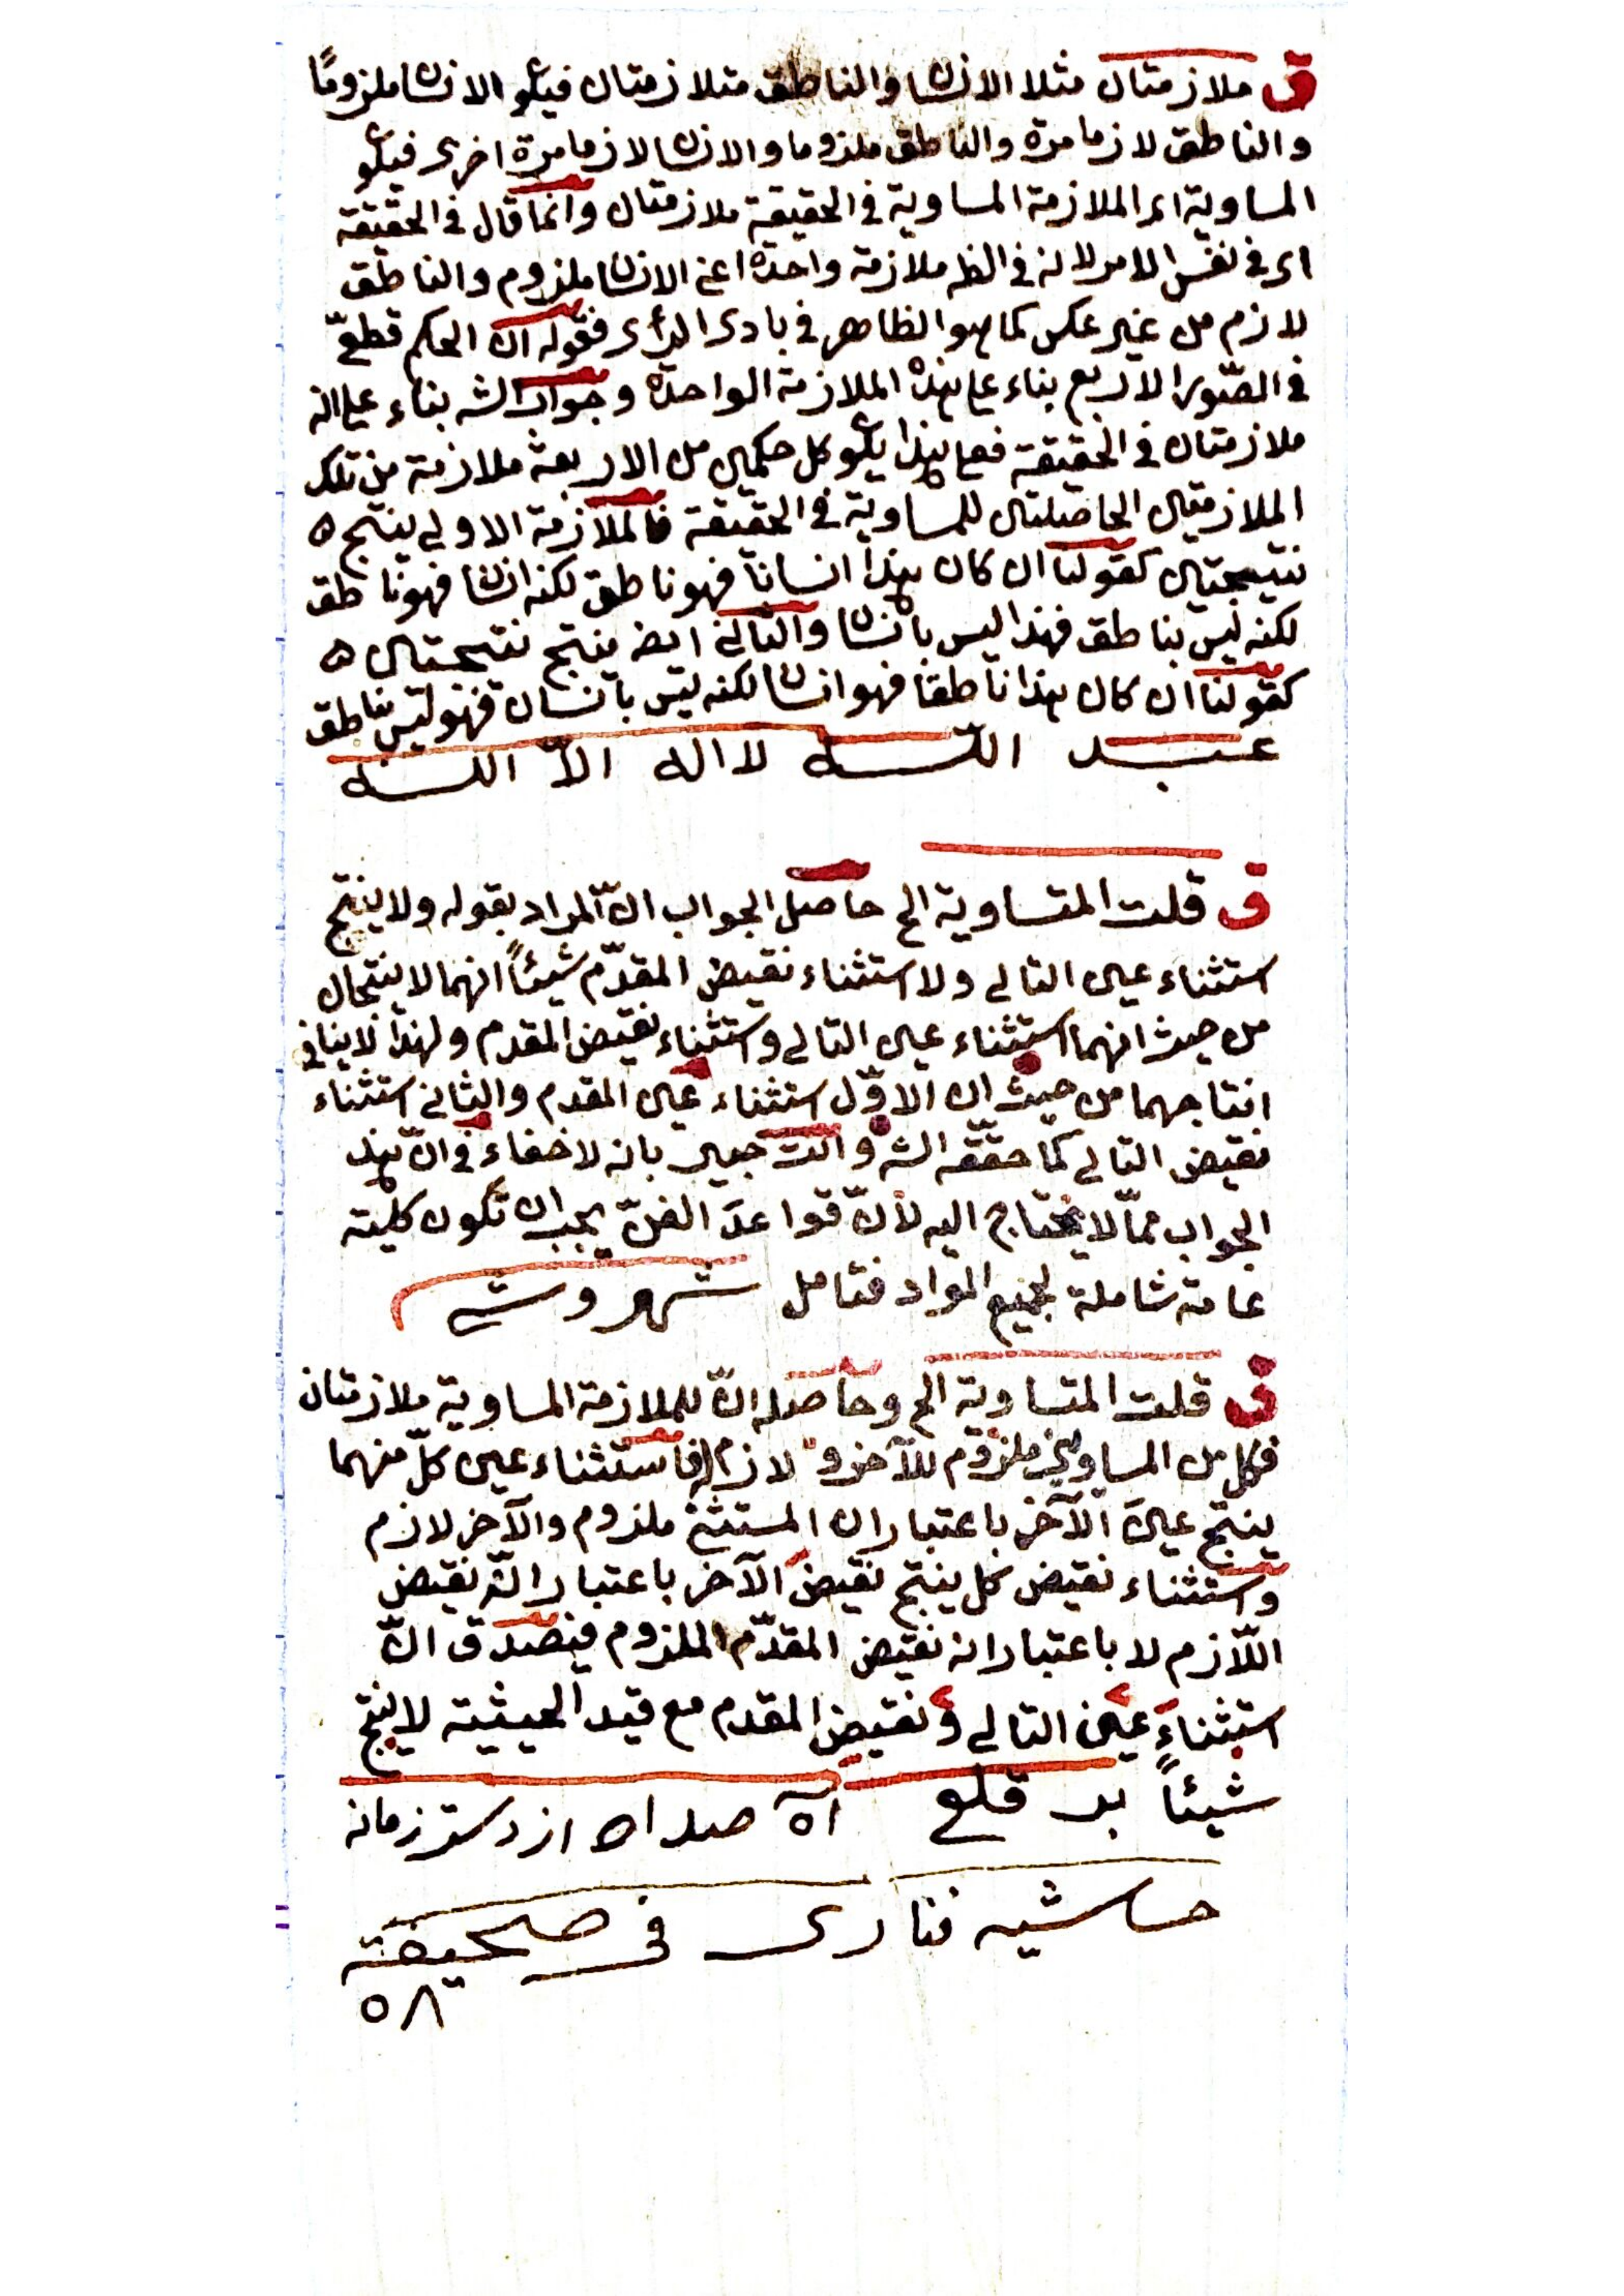 ق ملازمتان مثلا الانسا والناطق متلازمتان فيكو الانسا ملزومًا
والناطق لازما مرة والناطق ملزوما والانسا لازما مرة اخرى فيكو
المساوية اى الملازمة المساوية فى الحقيقة ملازمتان وانما قال فى الحقيقة
اى فى نفس الامر لانه فى الظ ملازمة واحدة اعنى الانسا ملزوم والناطق
لازم من غير عكس كما هو الظاهر فى بادى الرأى فقوله ان الحكم قطعىّ
فى الصّور الاربع بناء على هذه الملازمة الواحدة وجواب الشه بناء على انه
ملازمتان فى الحقيقة فعلى هذا يكو كل حكمين من الاربعة ملازمة من تلك
الملازمتين الحاصلتين للمساوية فى الحقيقة فالملازمة الاولى ينتج ه
نتيجتين كقولنا ان كان هذا انسانا فهو ناطق لكنه انسا فهو ناطق
لكنه ليس بناطق فهذا ليس بانسا والثانى ايضه ينتج نتيجتين ه
كقولنا ان كان هذا ناطقا فهو انسا لكنه ليس بانسان فهو ليس بناطق
عبد اللّه لا اله الاّ اللّه
ق قلت المتساوية الخ حاصل الجواب انّ المراد بقوله ولا ينتج
استثناء عين التالى ولا استثناء نقيض المقدّم شيئاً انهما لا ينتجان
من حيث انهما استثناء عين التالى واستثناء نقيض المقدم ولهذا لا ينافى
انتاجهما من حيث ان الاوّل استثناء عين المقدم والثانى استثناء
نقيض التالى كما حقّقه الشه وانت خبير بانه لا خفاء فى انّ هذا
الجواب ممّا لا يحتاج اليه لانّ قواعدَ الفنّ يجب ان تكون كليّة
عامة شاملة لجميع المواد فتامل شهروشى
ق قلت المتساوية الخ وحاصله انّ للملازمة المساوية ملازمتان
فكل من المساويين ملزوم للآخر ولازم فاستثناء عين كلّ منهما
ينتج عينَ الآخر باعتبار ان المستثنى ملزوم والآخر لازم
واستثناء نقيض كل ينتج نقيضَ الآخر باعتبار انّه نقيض
اللّازم لا باعتبار انه نقيض المقدّم الملزوم فيصدق انّ
استثناءَ عين التالى ونقيض المقدم مع قيد الحيثية لا ينتج
شيئاً بر قلع آه صد اه از دست زمانه
حاشيه فنارى فى صحيفة
٥٨